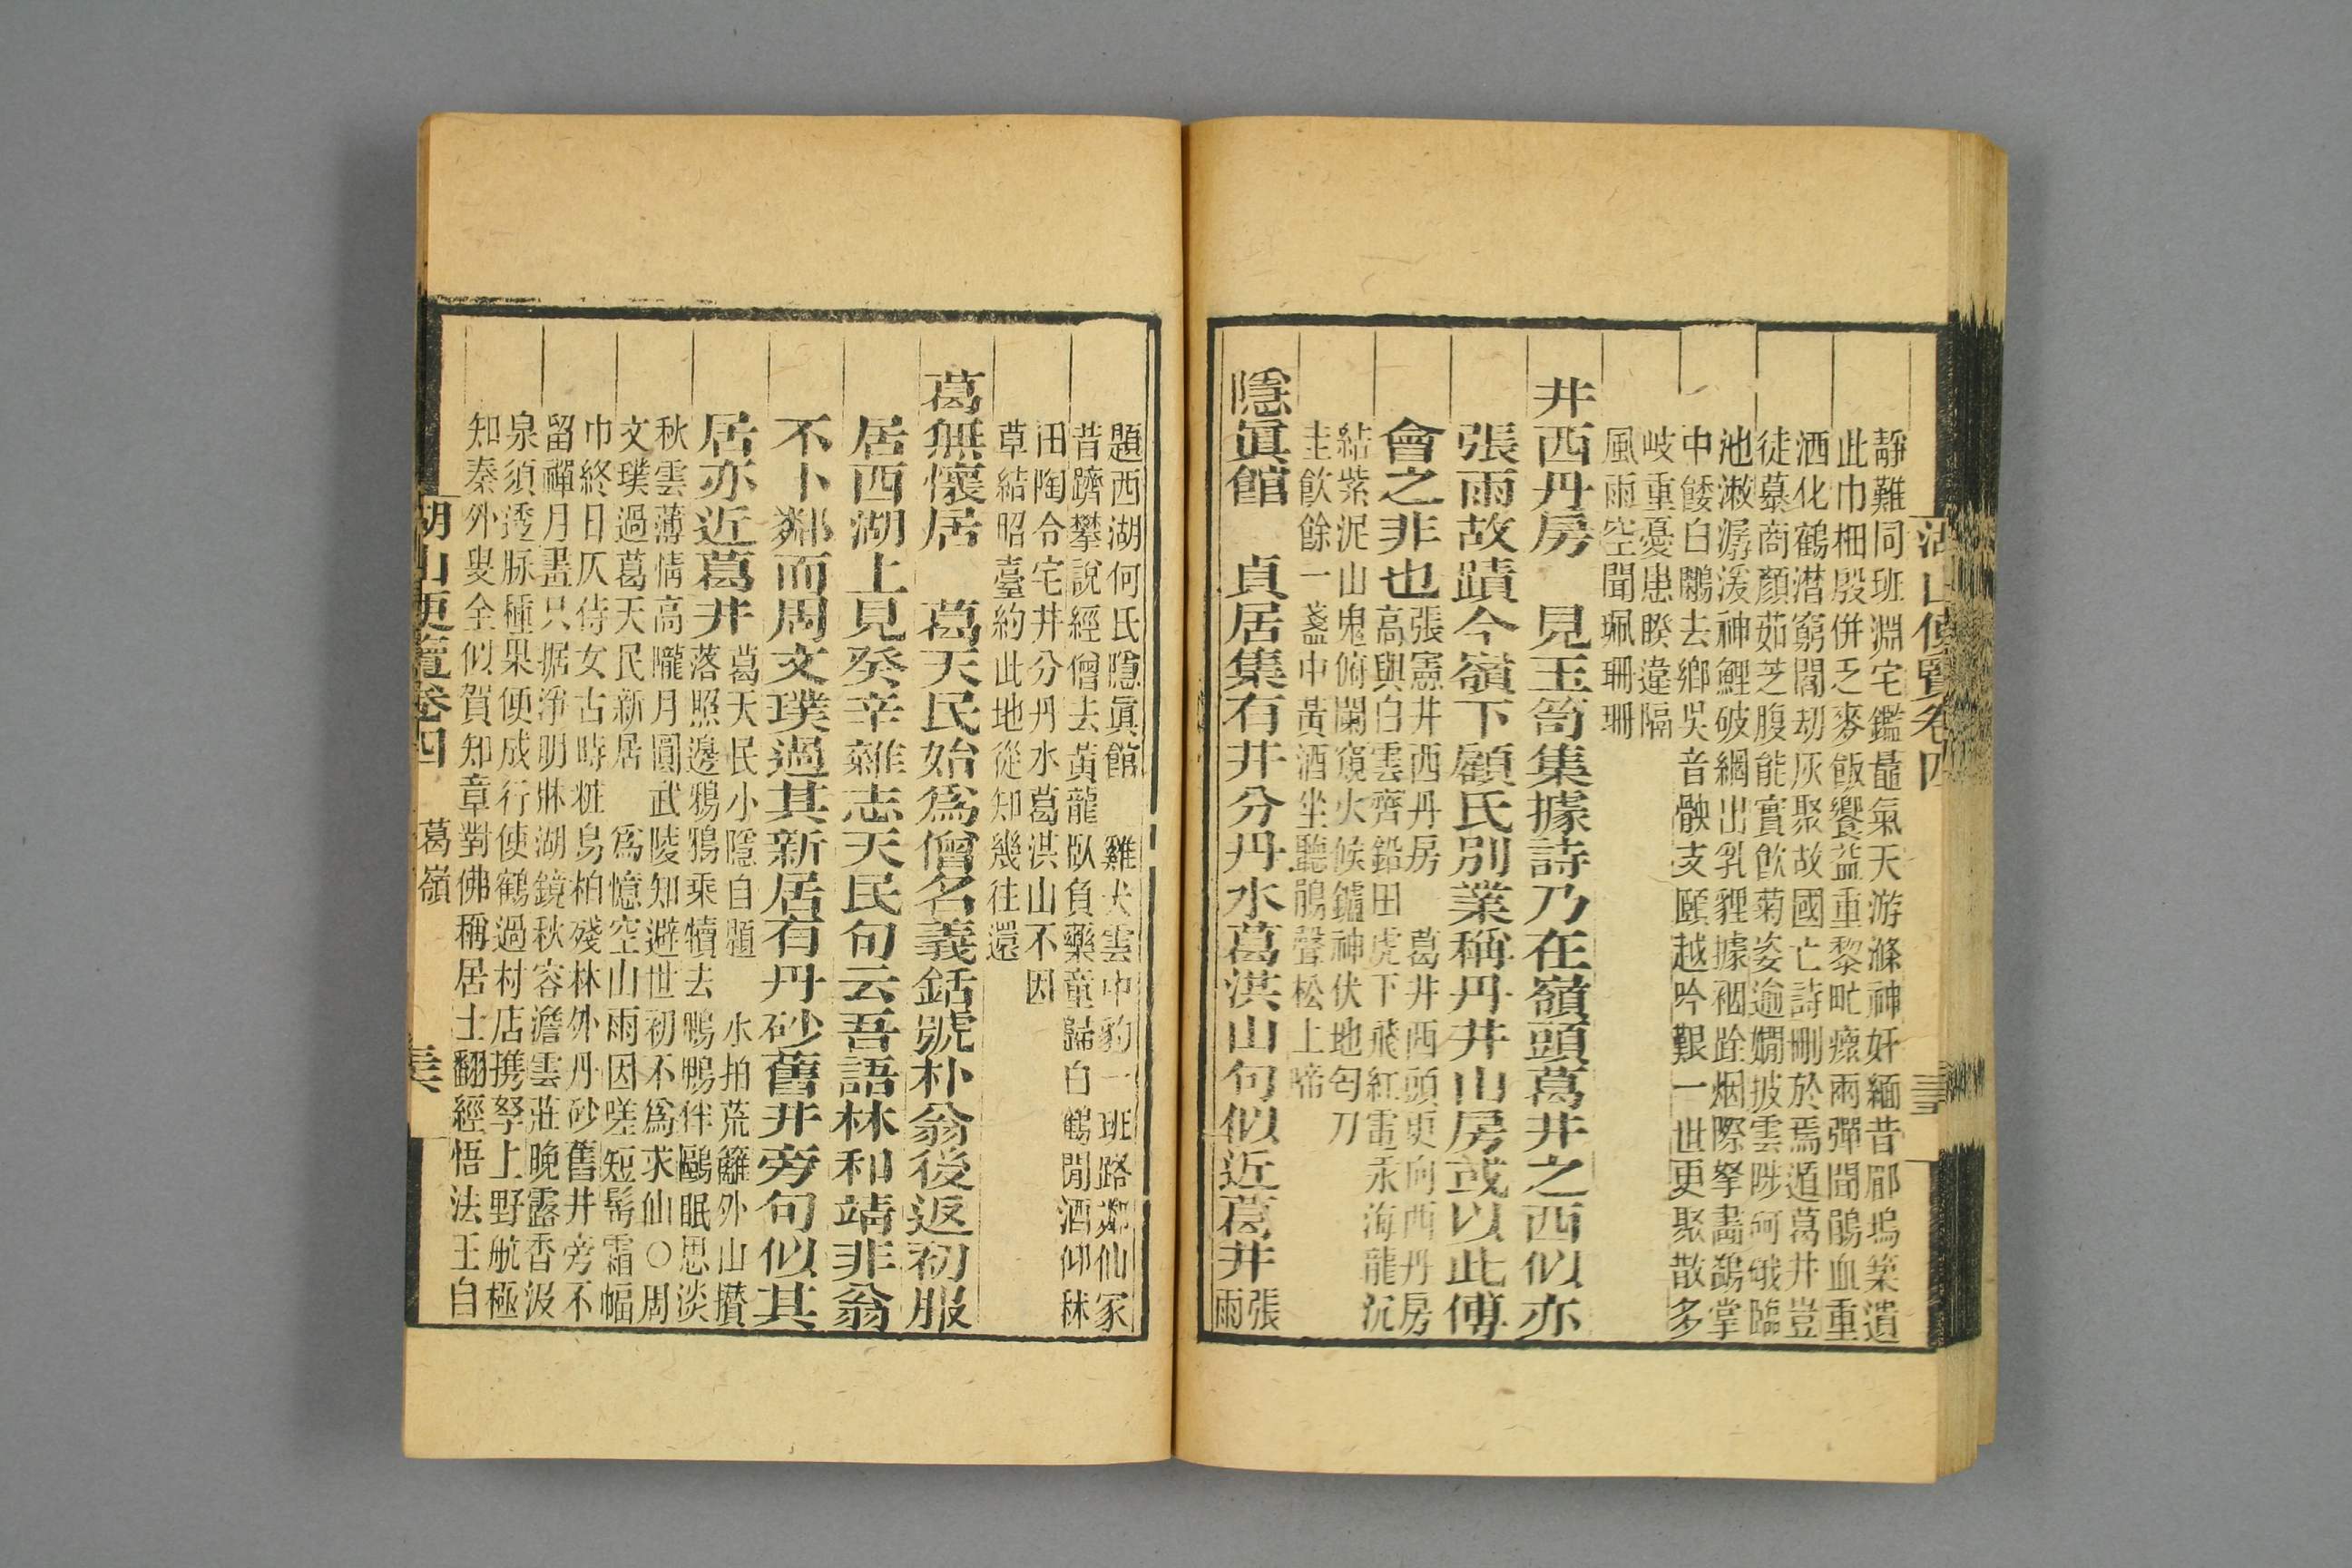 靜難同班淵宅鑑鼂氣天游滌神奸緬昔郿塢築遺
此巾柵殷併乏麥飯饗益重黎甿瘝雨彈聞鵑血重
洒化鶴潛窮閣刧灰聚故國亡詩刪於焉遁葛井豈
徒慕商顏茹芝腹能實飲菊姿逾嫺披雲陟硪臨
池漱潺湲神鯉破綱出乳貍據裀跧烟際拏畵鷁掌
中餧白鷳去鄉吳音骸支頤越吟艱一世更聚散多
岐重憂患睽違隔
風雨空聞珮珊珊
井西丹房　見玉笥集據詩乃在嶺頭葛井之西似亦
張雨故蹟今嶺下顧氏別業稱丹井山房或以此傅
會之非也
張憲井西丹房　葛井西頭更向西丹房
高與白雲齊鉛田虎下飛紅電汞海龍沉
結紫泥山鬼俯闌窺火候鑪神伏地匄刀
圭飲餘一盞中黃酒坐聽鵑聲松上啼
隱眞館　貞居集有井分丹水葛洪山句似近葛井
張
雨
題西湖何氏隱眞館　雞犬雲中豹一班路鄰仙冢
昔躋攀說經僧去黃龍臥負藥童歸白鶴閒酒仰秫
田陶令宅井分丹水葛洪山不因
草結昭臺約此地從知幾往還
葛無懷居　葛天民始爲僧名義銛號朴翁後返初服
居西湖上見癸辛雜志天民句云吾語林和靖非翁
不卜鄰而周文璞過其新居有丹砂舊井旁句似其
居亦近葛井
葛天民小隱自題　水拍荒籬外山攢
落照邊鴉鴉乘犢去鴨鴨伴鷗眠思淡
秋雲薄情高隴月圓武陵知避世初不爲求仙○周
文璞過葛天民新居　爲憶空山雨因嗟短髩霜幅
巾終日仄侍女古時粧烏桕殘林外丹砂舊井旁不
留禪月畫只据淨明牀湖鏡秋容澹雲莊晚露香汲
泉須透脉種果便成行使鶴過村店携孥上野航極
知秦外叟全似賀知章對佛稱居士翻經悟法王自
湖山便覽卷四　葛嶺